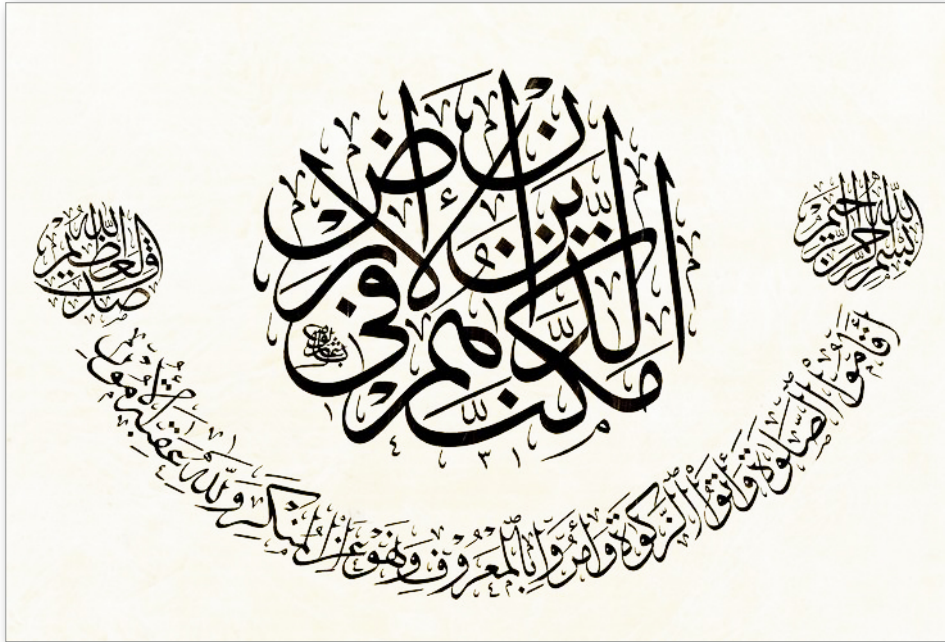 بِسْمِ اللَّهِ الرَّحْمَٰنِ الرَّحِيمِ
الَّذِينَ إِنْ مَكَّنَّاهُمْ فِي الْأَرْضِ
أَقَامُوا الصَّلَوٰةَ وَآتَوُا الزَّكَوٰةَ وَأَمَرُوا بِالْمَعْرُوفِ وَنَهَوْا عَنِ الْمُنْكَرِ وَلِلَّهِ عَاقِبَةُ الْأُمُورِ
صَدَقَ اللَّهُ الْعَظِيمُ
١٤٣١